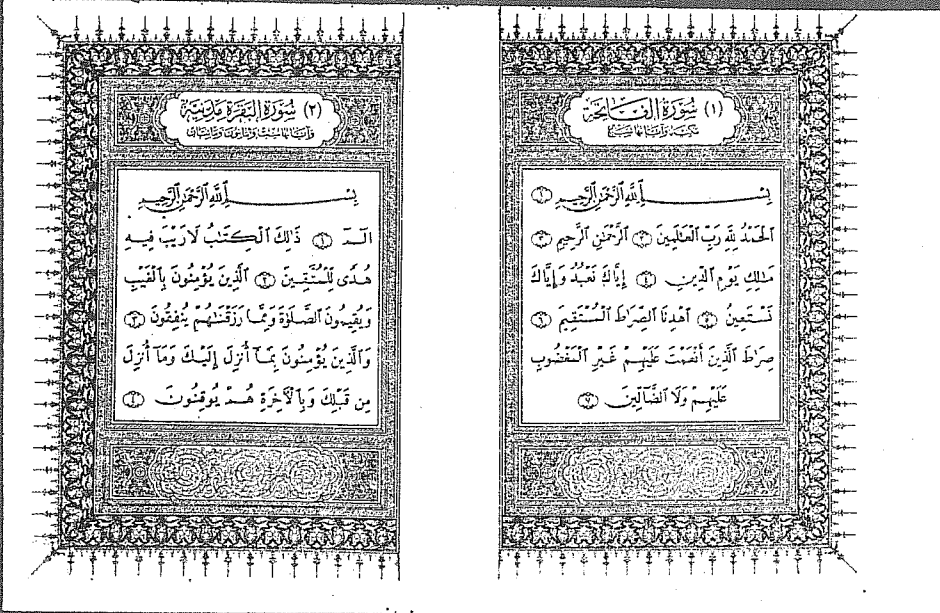 (١) سُورَةُ الفَاتِحَةِ
مَكِّيَّة وَآيَاتُهَا سَبْع
بِسْمِ ٱللَّهِ ٱلرَّحْمَٰنِ ٱلرَّحِيمِ ١
ٱلْحَمْدُ لِلَّهِ رَبِّ ٱلْعَٰلَمِينَ ٢ ٱلرَّحْمَٰنِ ٱلرَّحِيمِ ٣
مَٰلِكِ يَوْمِ ٱلدِّينِ ٤ إِيَّاكَ نَعْبُدُ وَإِيَّاكَ
نَسْتَعِينُ ٥ ٱهْدِنَا ٱلصِّرَٰطَ ٱلْمُسْتَقِيمَ ٦
صِرَٰطَ ٱلَّذِينَ أَنْعَمْتَ عَلَيْهِمْ غَيْرِ ٱلْمَغْضُوبِ
عَلَيْهِمْ وَلَا ٱلضَّآلِّينَ ٧
(٢) سُورَةُ البَقَرَةِ مَدَنِيَّة
وَآيَاتُهَا سِتٌّ وَثَمَانُونَ وَمِائَتَانِ
بِسْمِ ٱللَّهِ ٱلرَّحْمَٰنِ ٱلرَّحِيمِ
الٓمٓ ١ ذَٰلِكَ ٱلْكِتَٰبُ لَا رَيْبَ فِيهِ
هُدًى لِّلْمُتَّقِينَ ٢ ٱلَّذِينَ يُؤْمِنُونَ بِٱلْغَيْبِ
وَيُقِيمُونَ ٱلصَّلَوٰةَ وَمِمَّا رَزَقْنَٰهُمْ يُنفِقُونَ ٣
وَٱلَّذِينَ يُؤْمِنُونَ بِمَآ أُنزِلَ إِلَيْكَ وَمَآ أُنزِلَ
مِن قَبْلِكَ وَبِٱلْءَاخِرَةِ هُمْ يُوقِنُونَ ٤